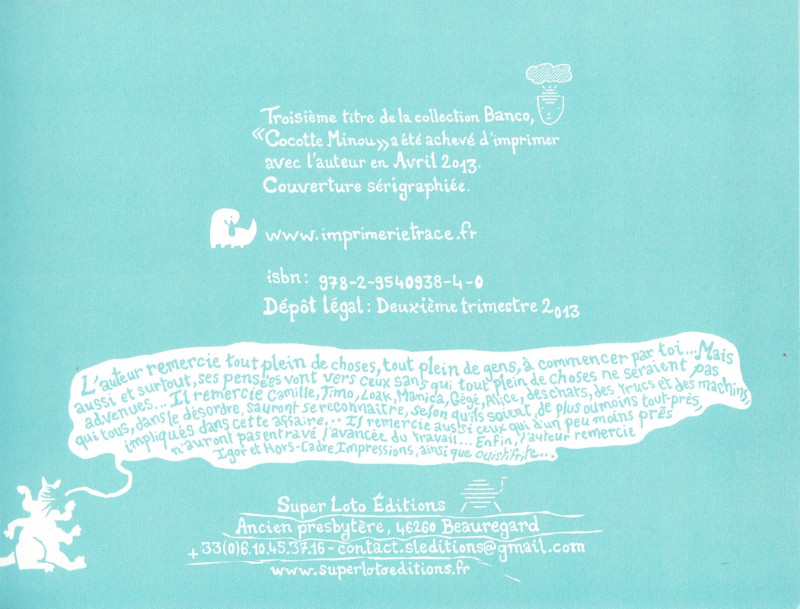 Troisième titre de la collection Banco,
«Cocotte Minou» a été achevé d'imprimer
avec l'auteur en Avril 2013.
Couverture sérigraphiée.
www.imprimerietrace.fr
isbn: 978-2-9540938-4-0
Dépôt légal: Deuxième trimestre 2013
L'auteur remercie tout plein de choses, tout plein de gens, à commencer par toi... Mais
aussi et surtout, ses pensées vont vers ceux sans qui tout plein de choses ne seraient pas
advenues... Il remercie Camille, Timo, Loak, Manica, Gégé, Alice, des chats, des trucs et des machins,
qui tous, dans le désordre, sauront se reconnaître, selon qu'ils soient de plus ou moins tout près,
impliqués dans cette affaire... Il remercie aussi ceux qui d'un peu moins près
n'auront pas entravé l'avancée du travail... Enfin, l'auteur remercie
Igor et Hors-Cadre Impressions, ainsi que Ouistifrite...
Super Loto Éditions
Ancien presbytère, 46260 Beauregard
+33(0)6.10.45.37.16 - contact.sleditions@gmail.com
www.superlotoeditions.fr